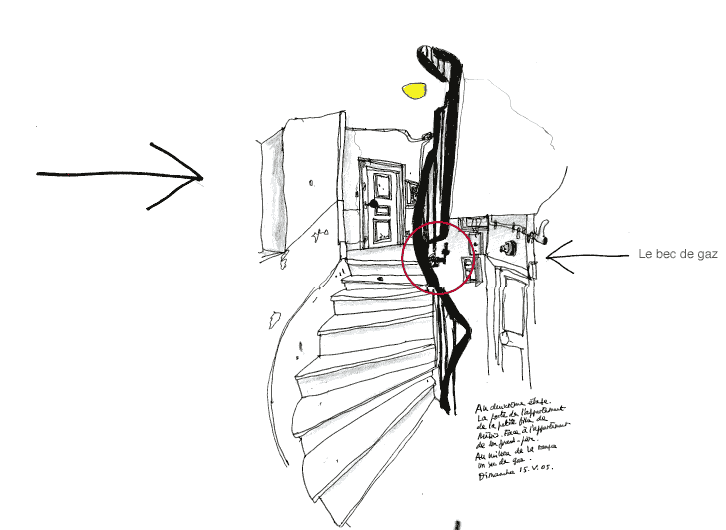 Le bec de gaz
Au deuxième étage.
La porte de l'appartement
de la petite fille de
Face à l'appartement
de son grand-père.
Au milieu de la rampe
un bec de gaz.
Dimanche 15.V.05.